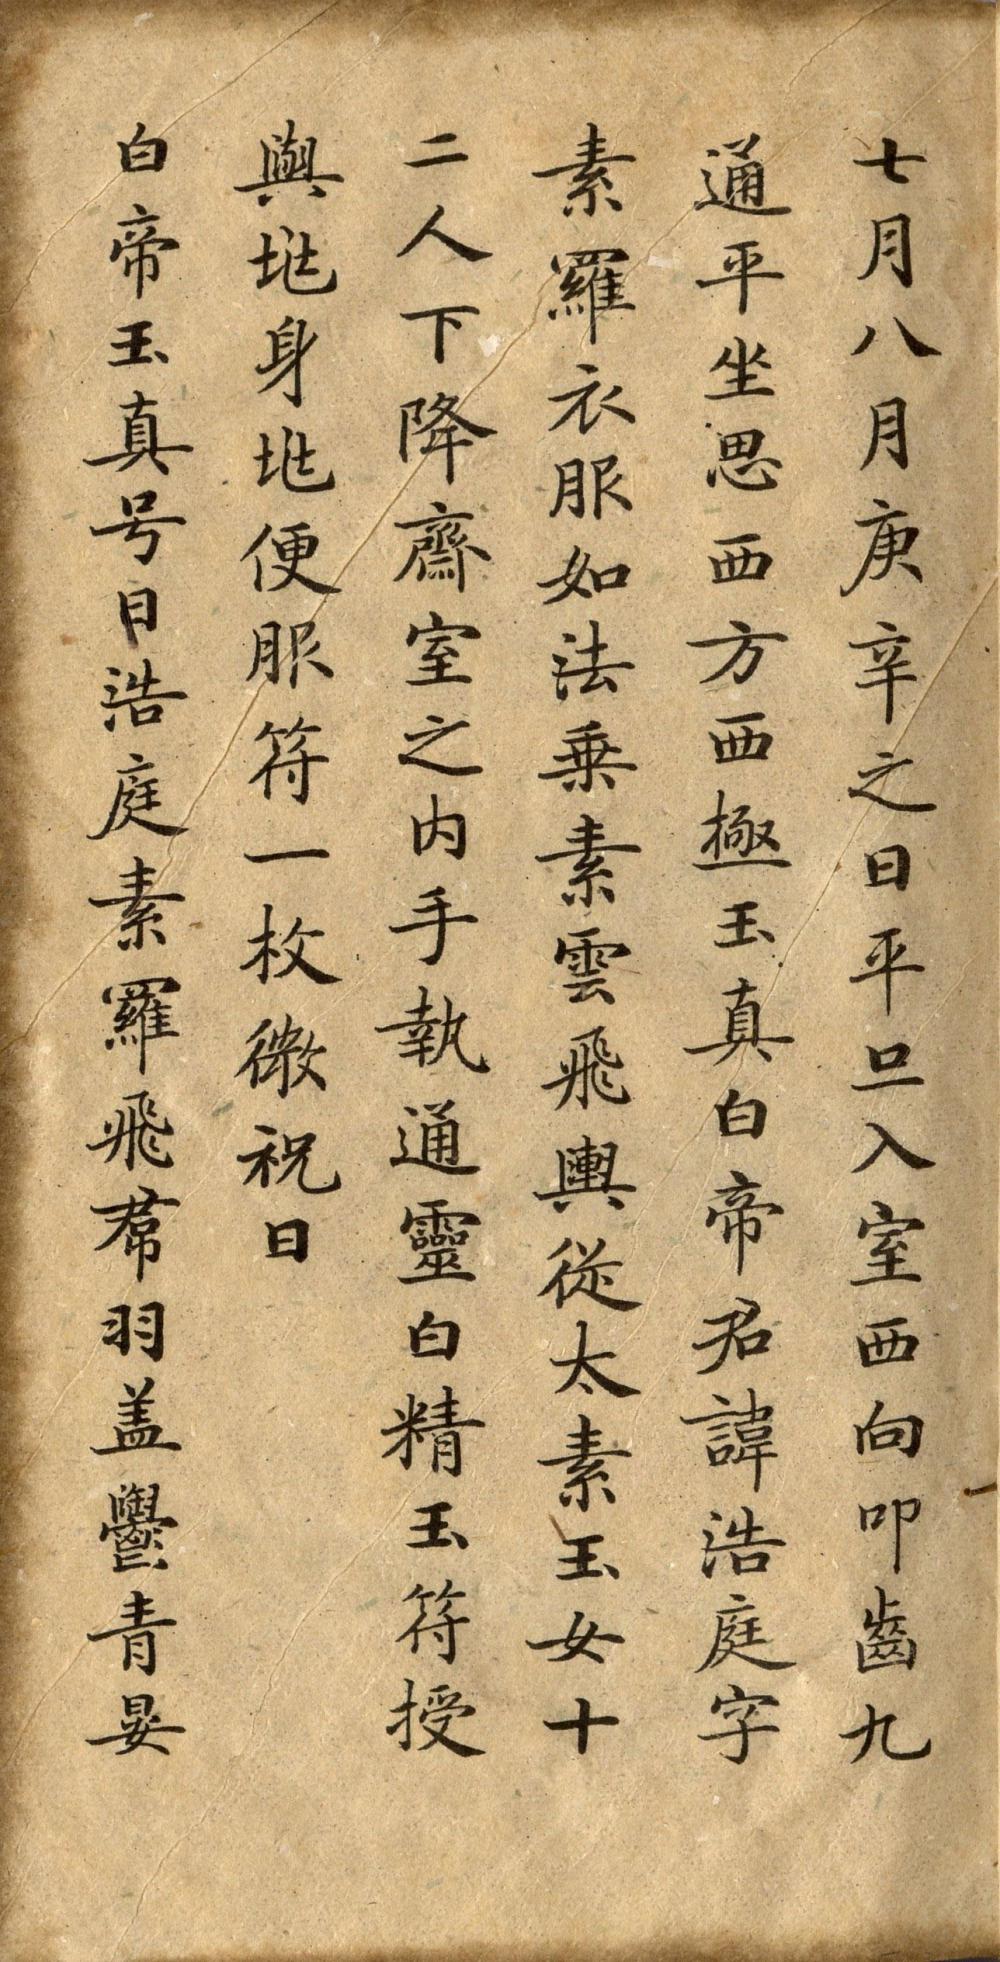 七月八月庚辛之日平旦入室西向叩齒九
通平坐思西方西極玉真白帝君諱浩庭字
素羅衣服如法乗素雲飛輿從太素玉女十
二人下降齋室之内手執通靈白精玉符授
與地身地便服符一枚微祝曰
白帝玉真号曰浩庭素羅飛帬羽盖鬱青晏